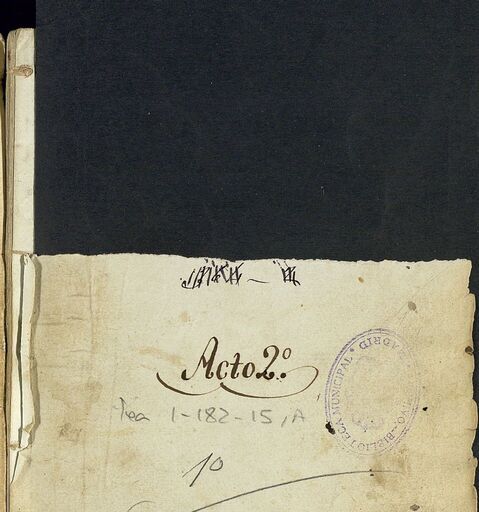 Acto 2º
Tea 1-182-15, A
10
BIBLIOTECA MUNICIPAL · MADRID